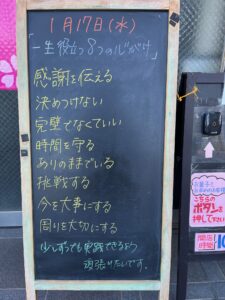 1月17日(水)
「一生役立つ8つの心がけ」
感謝を伝える
決めつけない
完璧でなくていい
時間を守る
ありのままでいる
挑戦する
今を大事にする
周りを大切にする
少しずつでも実践できるよう
頑張りたいです。
こちらの
ボタンを
押して下さい
開店
時間